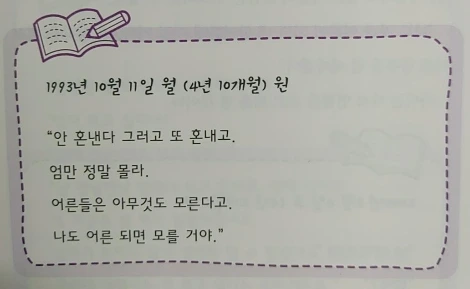 1993년 10월 11일 월 (4년 10개월) 원
"안 혼낸다 그러고 또 혼내고.
엄만 정말 몰라.
어른들은 아무것도 모른다고.
나도 어른 되면 모를 거야."